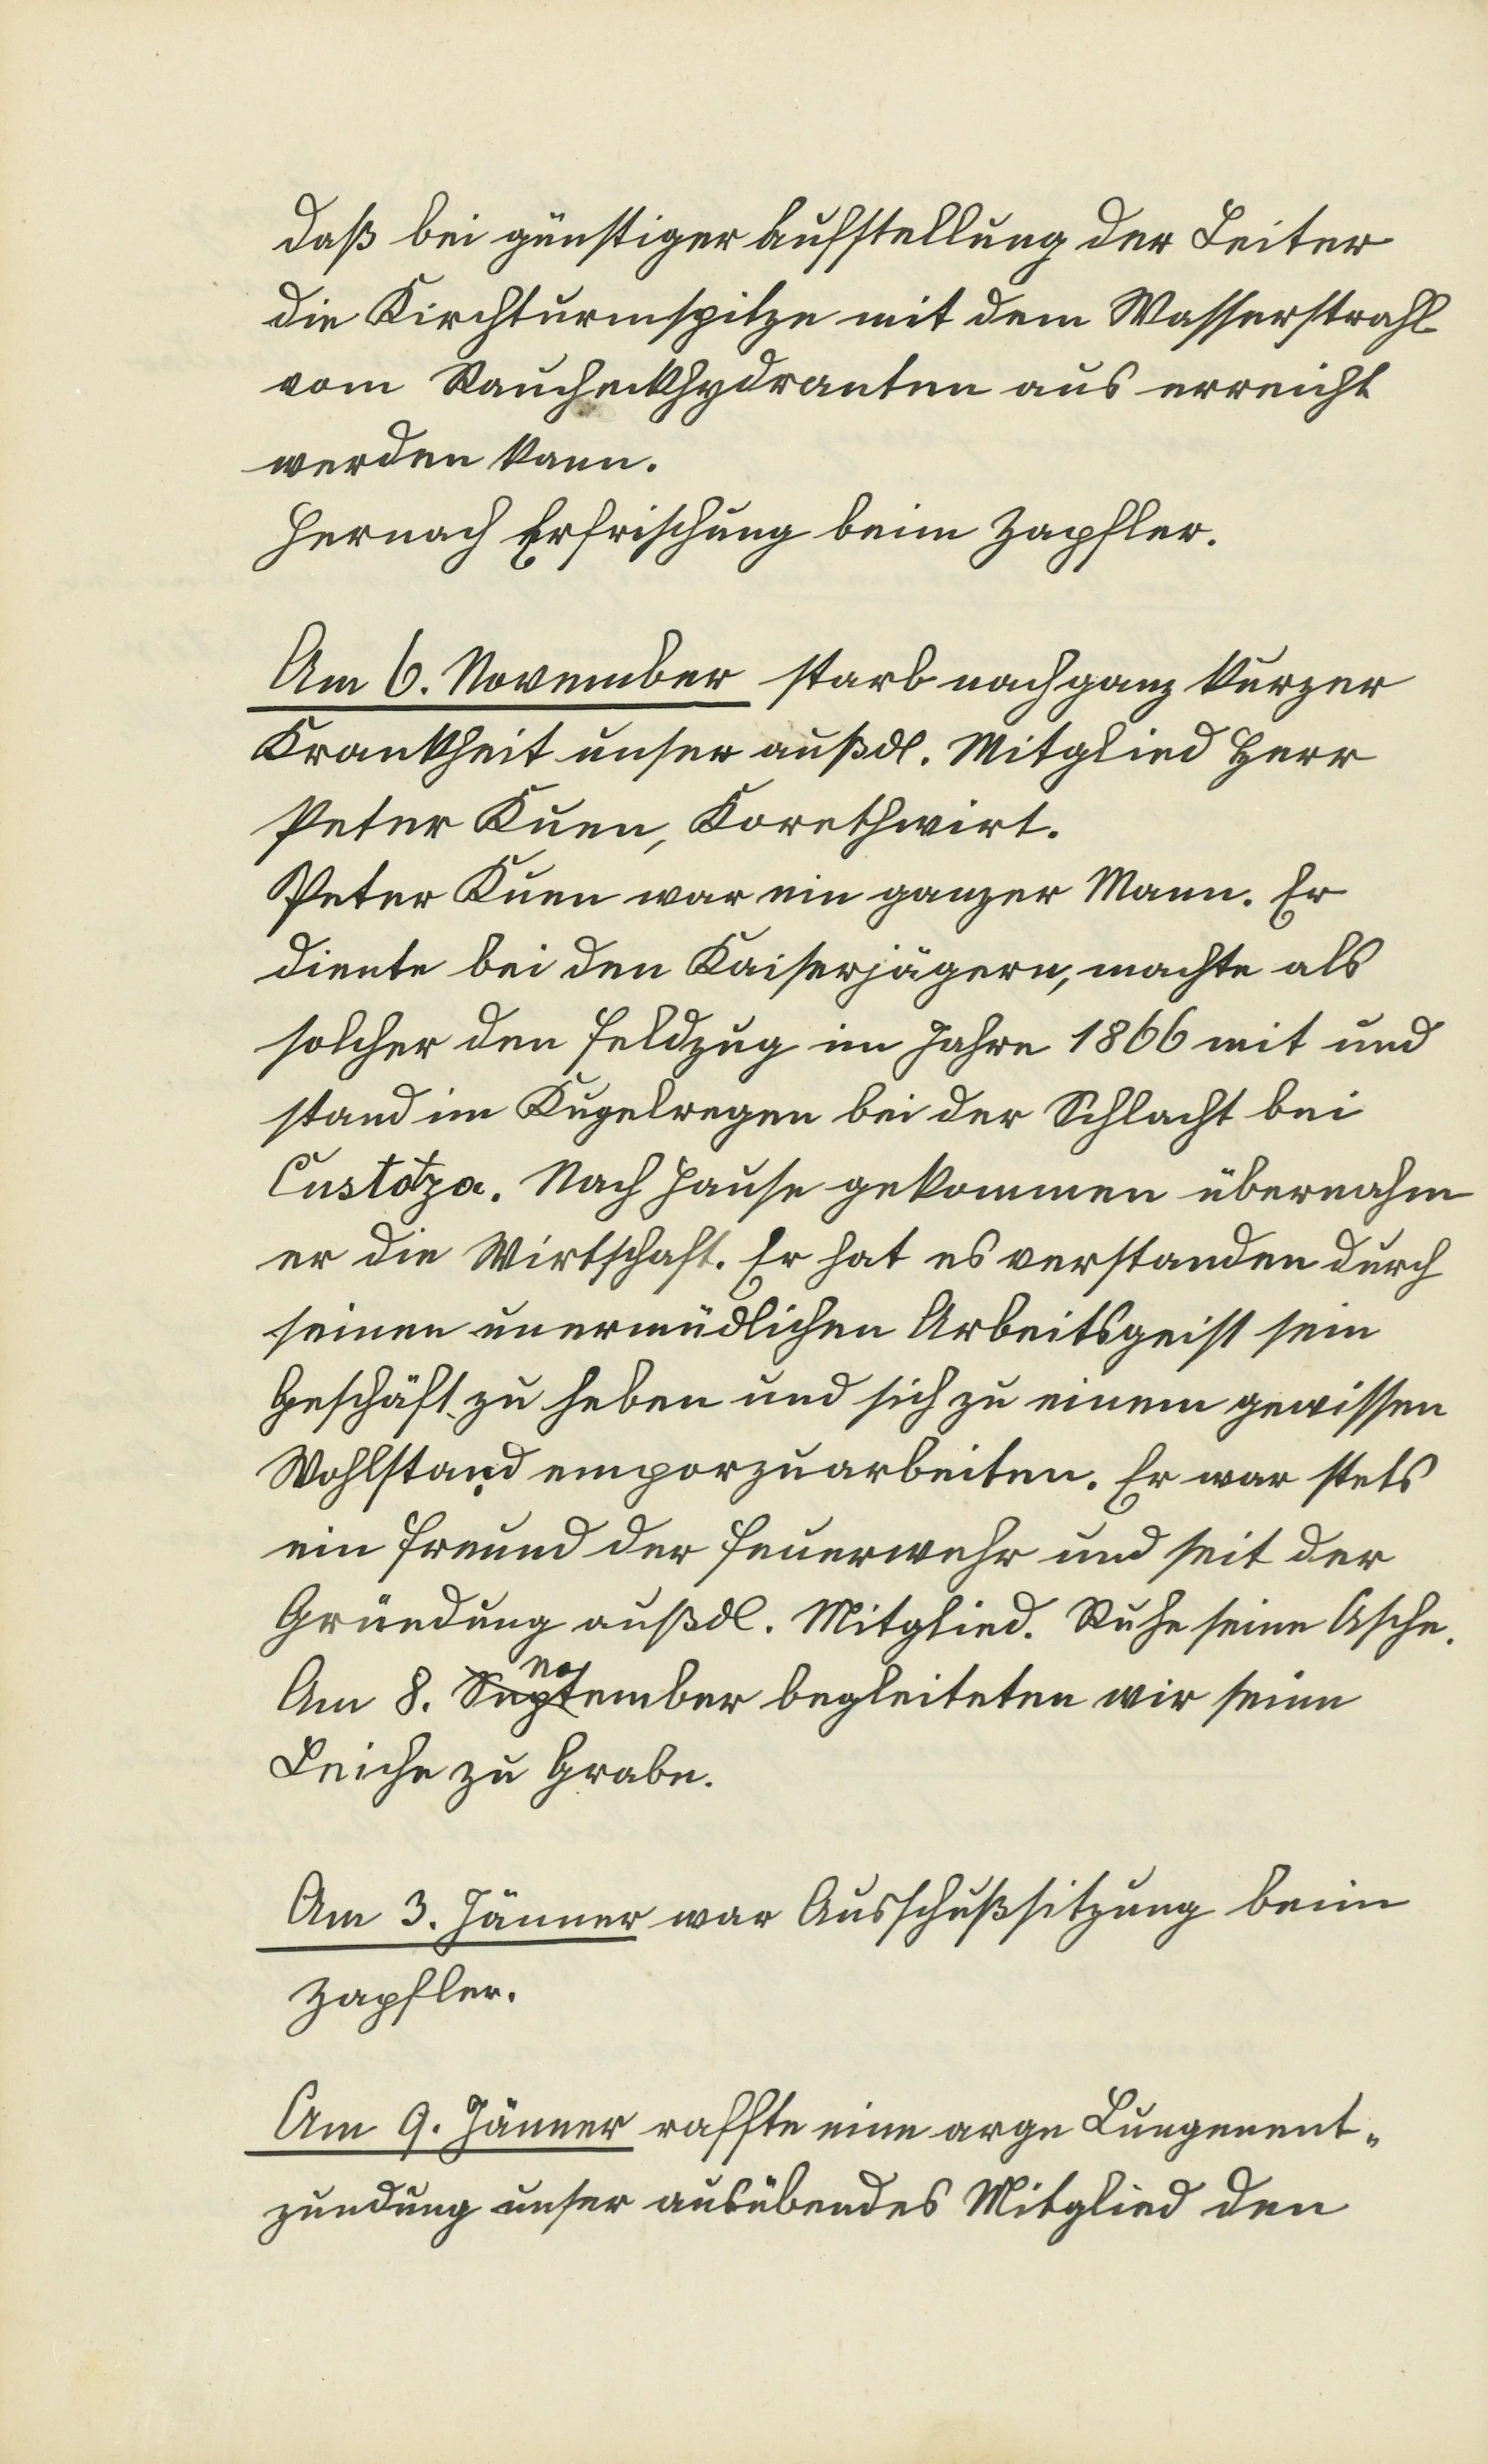 daß bei günstiger Aufstellung der Leiter
die Kirchturmspitze mit dem Wasserstrahl
vom Raucheckhydranten aus erreicht
werden kann.
Hernach Erfrischung beim Zapfler.
Am 6. November starb nach ganz kurzer
Krankheit unser außdl. Mitglied Herr
Peter Kuen, Korethwirt.
Peter Kuen war ein ganzer Mann. Er
diente bei den Kaiserjägern, machte als
solcher den Feldzug im Jahre 1866 mit und
stand im Kugelregen bei der Schlacht bei
Custozza. Nach Hause gekommen übernahm
er die Wirtschaft. Er hat es verstanden durch
seinen unermüdlichen Arbeitsgeist sein
Geschäft zu heben und sich zu einem gewissen
Wohlstand emporzuarbeiten. Er war stets
ein Freund der Feuerwehr und seit der
Gründung außdl. Mitglied. Ruhe seine Asche.
Am 8. November begleiteten wir seine
Leiche zu Grabe.
Am 3. Jänner war Ausschußsitzung beim
Zapfler.
Am 9. Jänner raffte eine arge Lungenent-
zundung unser ausübendes Mitglied den